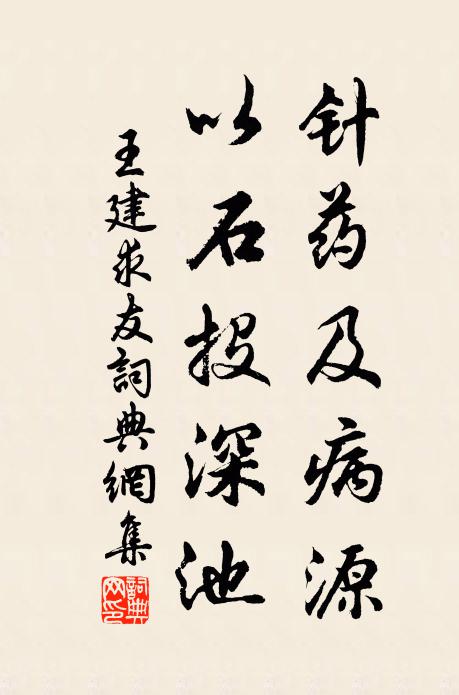 针药及病源
以石投深池
王建求友詞典網集
詞典网印